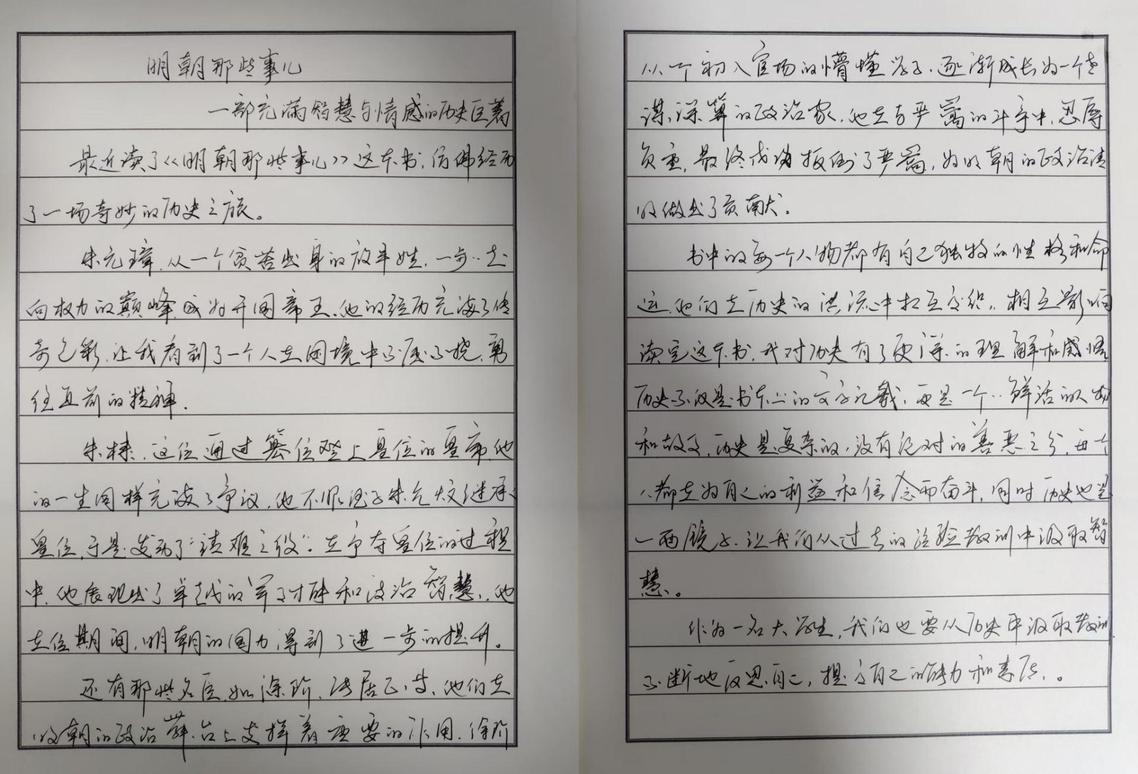 明朝那些事儿
一部充满智慧与情感的历史巨著
最近读了《明朝那些事儿》这本书,仿佛经历
了一场奇妙的历史之旅。
朱元璋,从一个贫苦出身的放牛娃,一步一步走
向权力的巅峰成为开国帝王,他的经历充满了传
奇色彩,让我看到了一个人在困境中不屈不挠,勇
往直前的精神。
朱棣,这位通过篡位登上皇位的皇帝,他
的一生同样充满了争议,他不愿
皇位,于是发动了"靖难之役"。在争夺皇位的过程
中,他展现出了卓越的军事才能和政治智慧,他
在位期间,明朝的国力得到了进一步的提升。
还有那些名臣如徐阶,张居正等,他们在
明朝的政治舞台上发挥着重要的作用,徐阶
从一个初入官场的懵懂学子,逐渐成长为一个老
谋深算的政治家,他在与严嵩的斗争中,忍辱
负重,最终成功扳倒了严嵩,为明朝的政治清
明做出了贡献。
书中的每一个人物都有自己独特的性格和命
运,他们在历史的洪流中相互交织,相互影响
读完这本书,我对历史有了更深的理解和感悟
历史不仅是书本上的文字记载,更是一个个鲜活的人物
和故事,历史是复杂的,没有绝对的善恶之分,每个
人都在为自己的利益和信念而奋斗,同时历史也是
一面镜子,让我们从过去的经验教训中汲取智
慧。
作为一名大学生,我们也要从历史中汲取教训
不断地反思自己,提高自己的能力和素质。